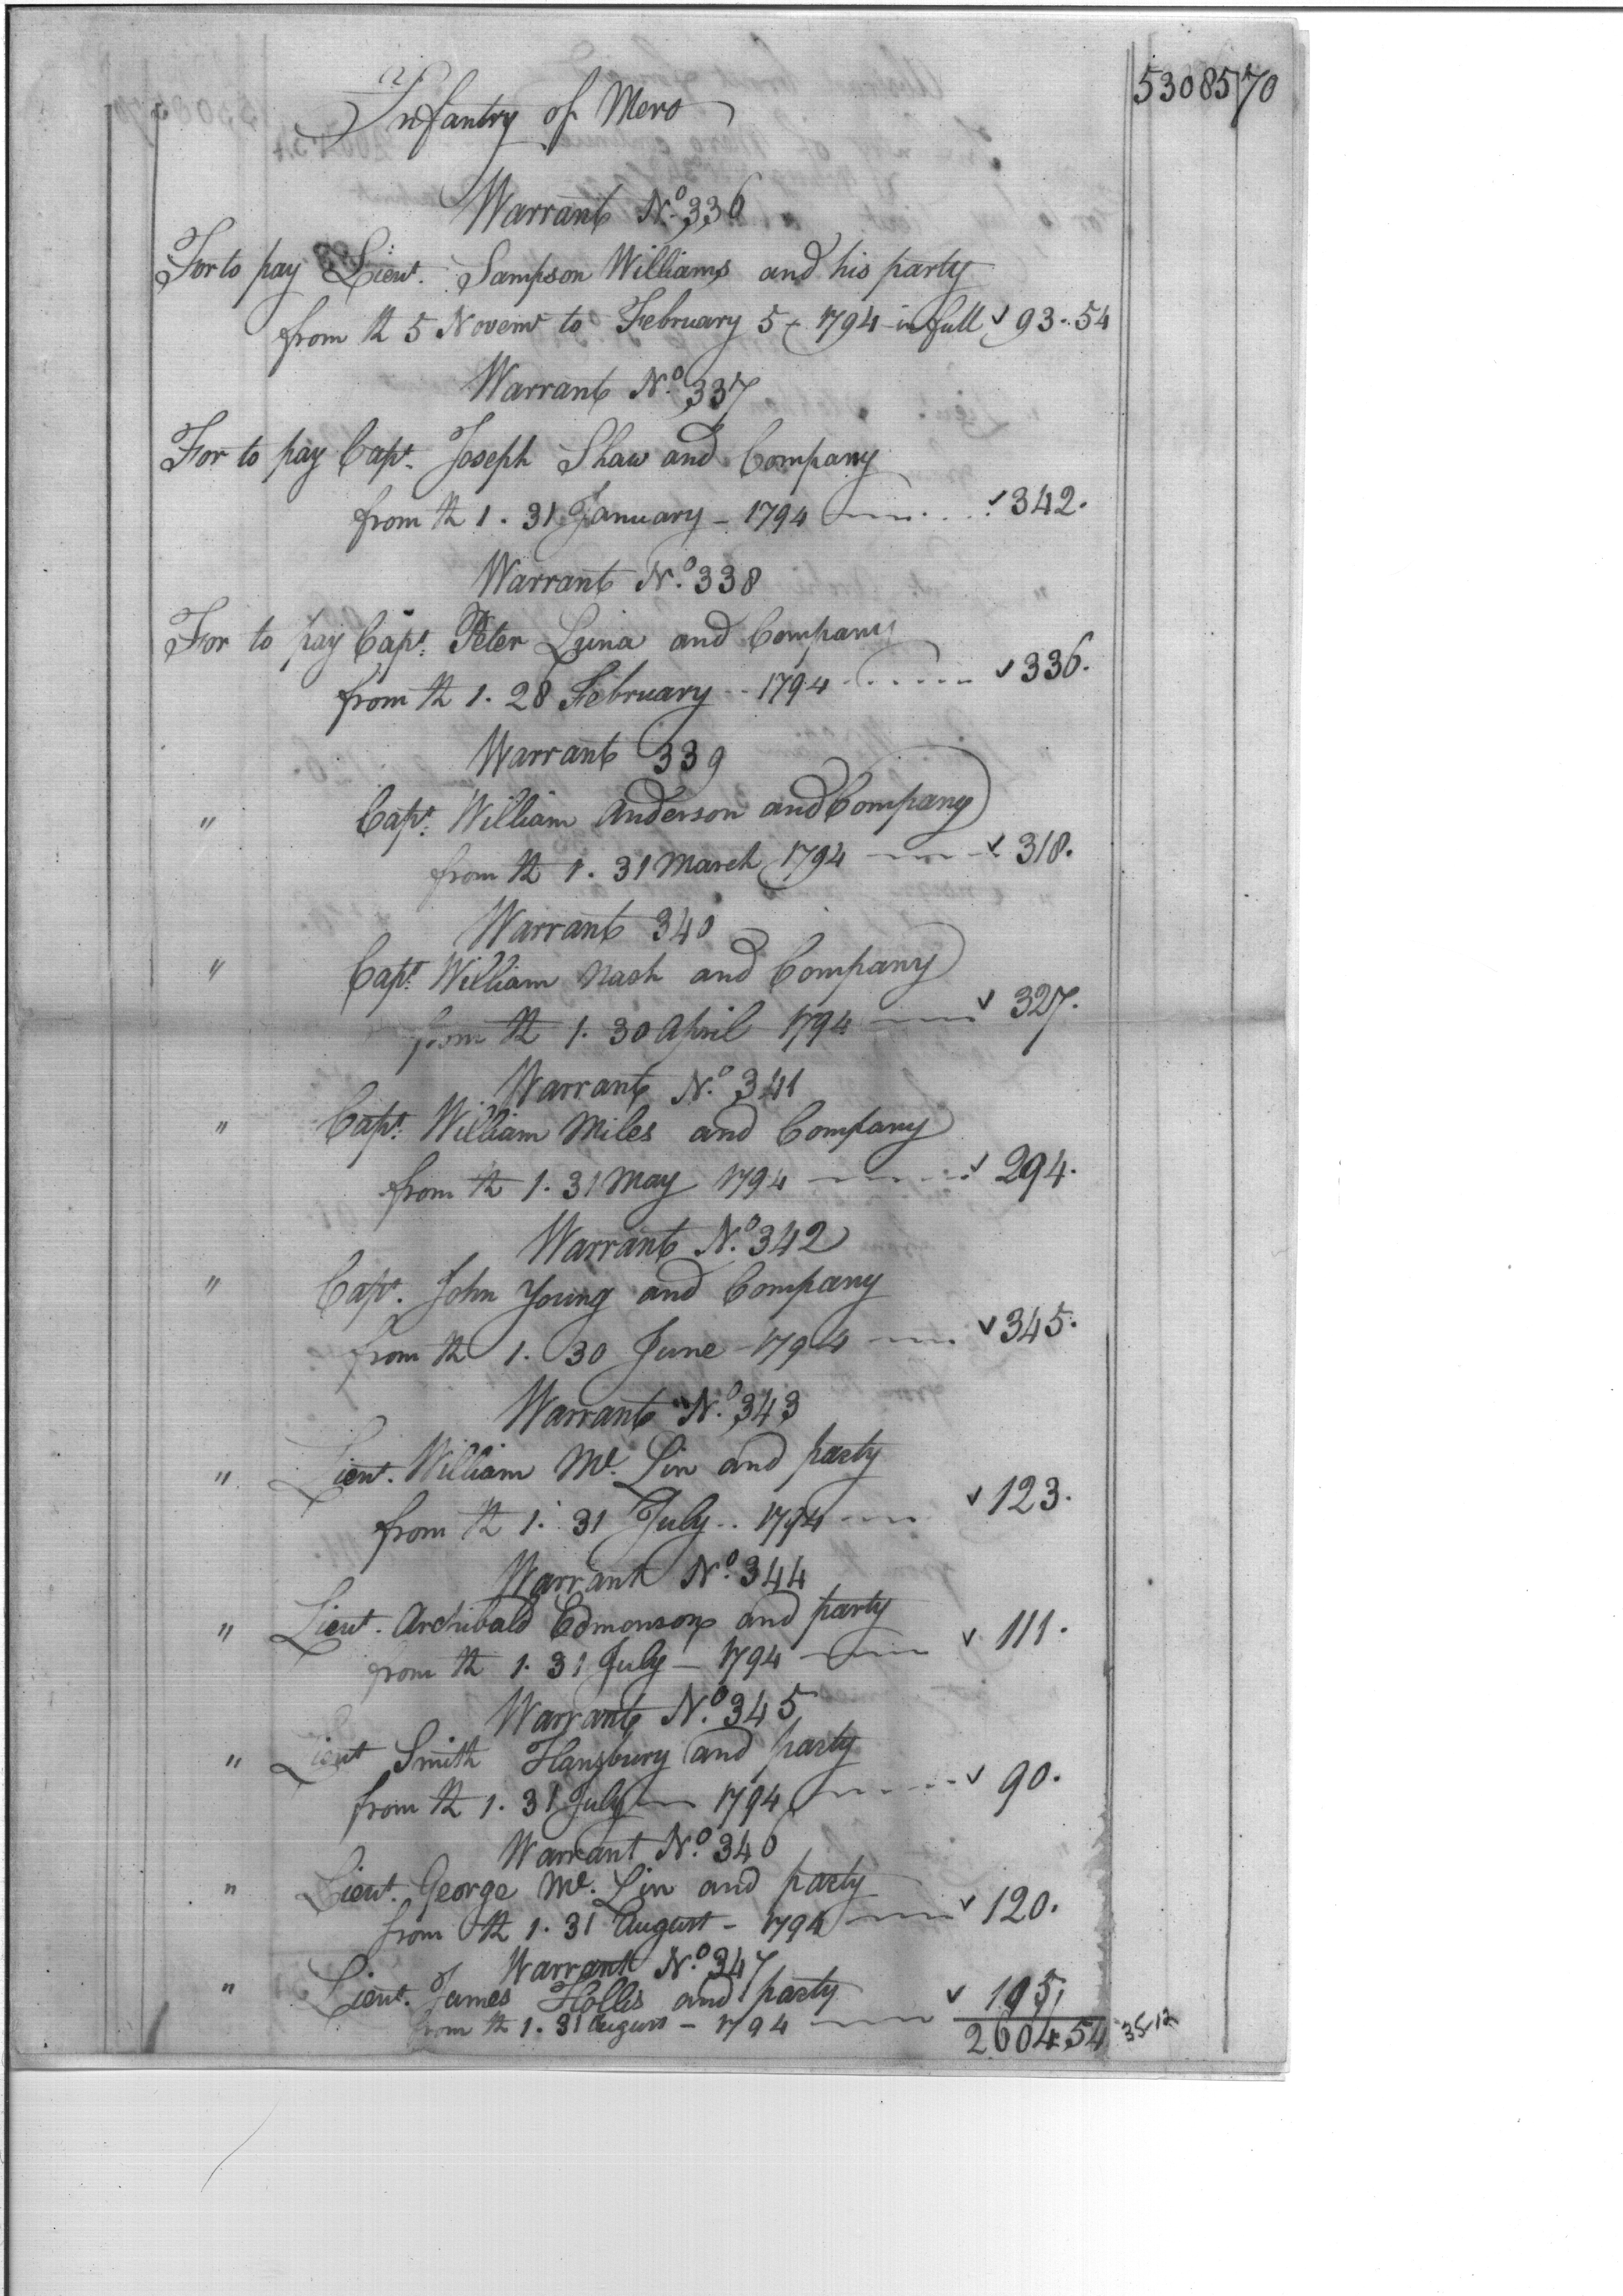 53085 70
Infantry of Mero
Warrant No. 336
For to pay Lieut. Sampson Williams and his party
from th 5 Novemr to February 5 - 1794 in full 93.54
Warrant No. 337
For to pay Capt. Joseph Shaw and Company
from th 1. 31 January - 1794 342.
Warrant No. 338
For to pay Capt. Peter Luna and Company
from th 1. 28 February - 1794 336.
Warrant 339
" Capt. William Anderson and Company
from th 1. 31 March 1794 318.
Warrant 340
" Capt. William Nash and Company
from th 1. 30 April 1794 327.
Warrant No. 341
" Capt. William Miles and Company
from th 1. 31 May 1794 294.
Warrant No. 342
" Capt. John Young and Company
from th 1. 30 June - 1794 345.
Warrant No. 343
" Lieut. William Mc. Lin and party
from th 1. 31 July - 1794 123.
Warrant No. 344
" Lieut. Archibald Edmonson and party
from th 1. 31 July - 1794 111.
Warrant No. 345
" Lieut Smith Hansbury and party
from th 1. 31 July 1794 90.
Warrant No. 346
" Lieut. George Mc. Lin and party
from th 1. 31 August - 1794 120.
Warrant No. 347
" Lieut. James Hollis and party
from th 1. 31 August - 1794 105
2604.54